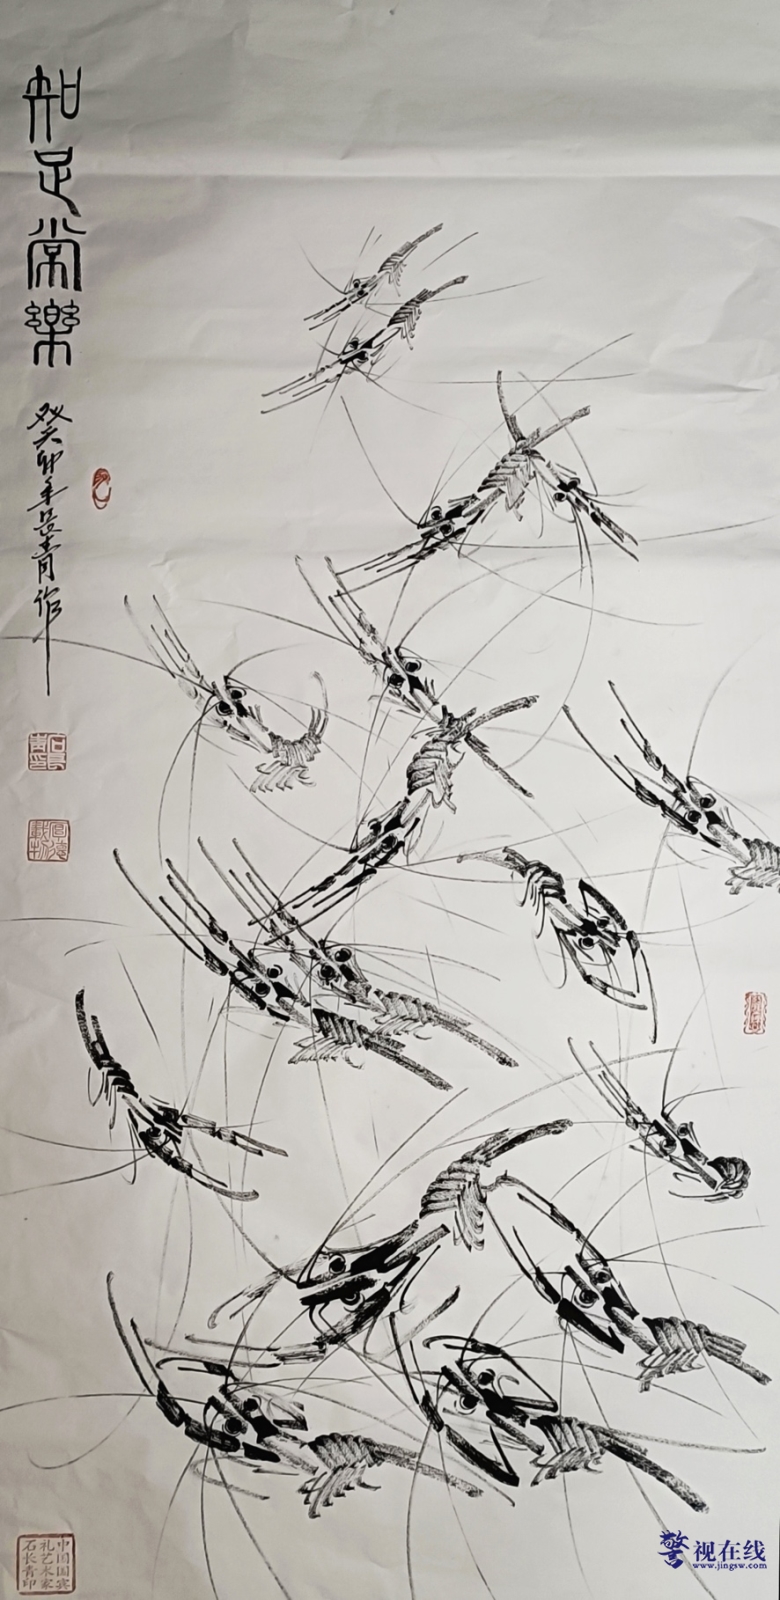 知足常樂
癸卯年長青作
石長
青印
厚德
載物
中国国宾
礼艺术家
石长青印
警视在线
www.jingsw.com